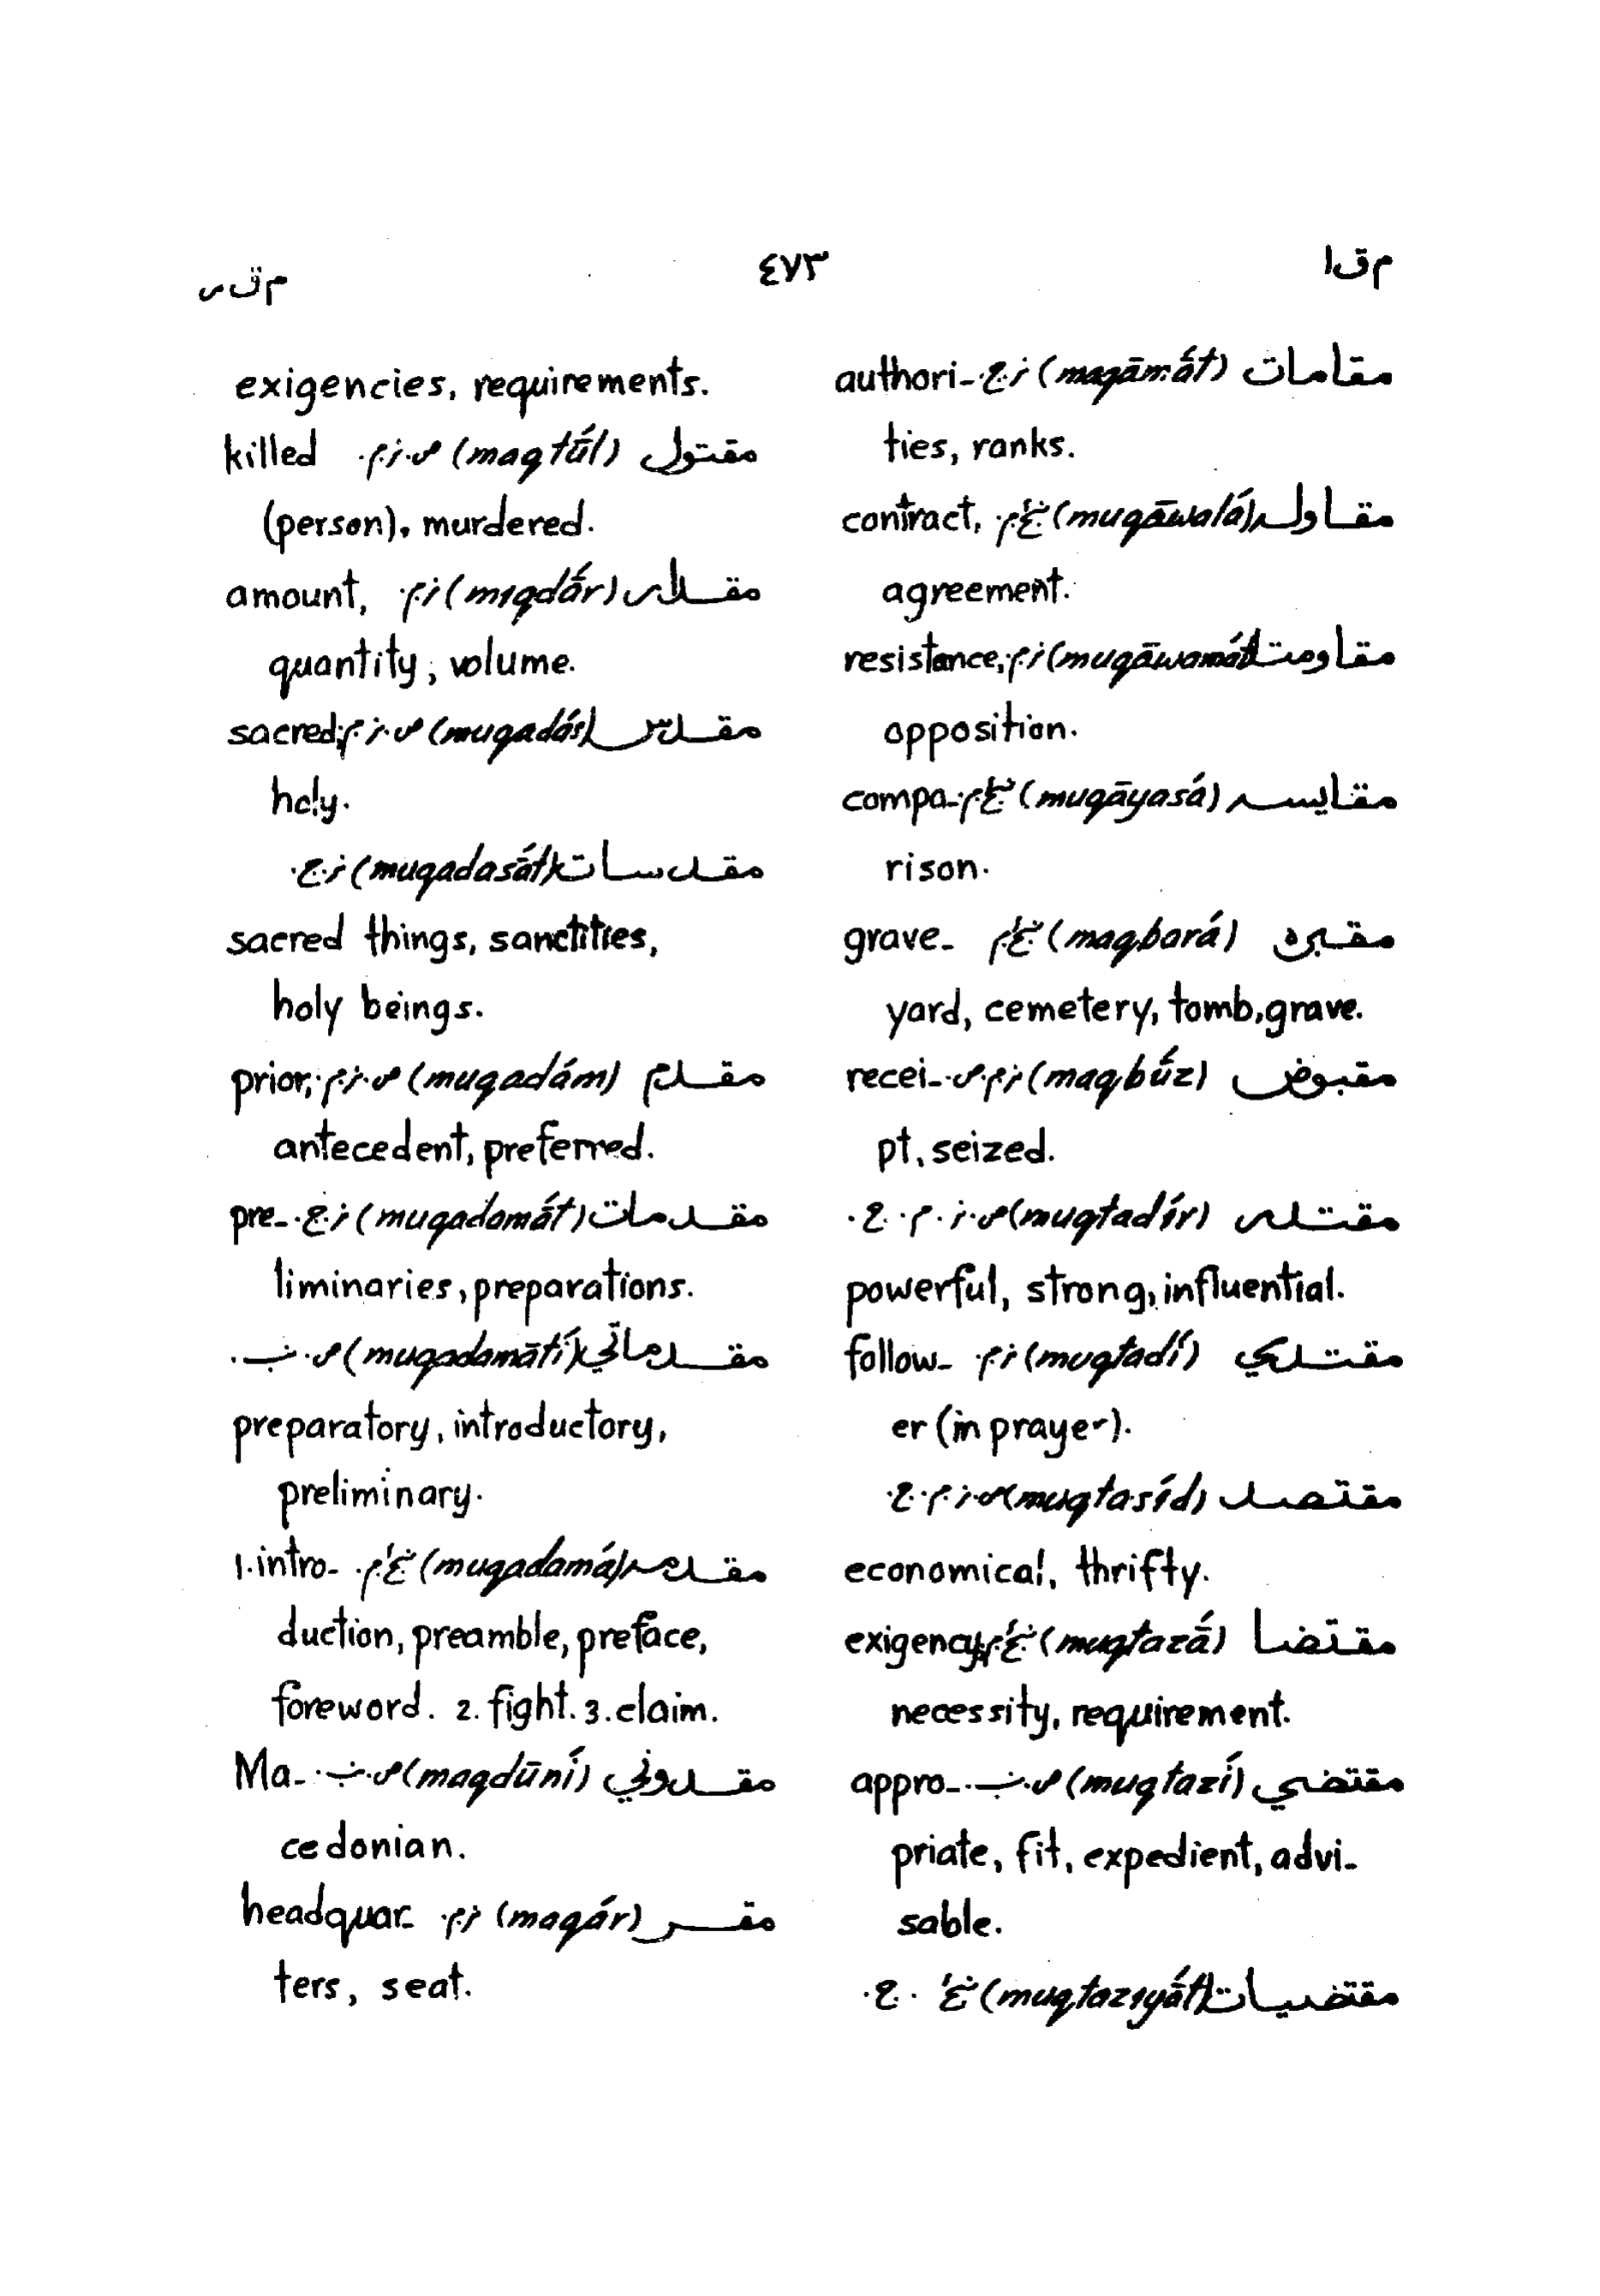 م ق ا
٤٧٣
م ق ر
مقامات (maqāmā́t) ن.ج. authori-
ties, ranks.
مقاوله (muqāwalá) ښځ.م. contract,
agreement.
مقاومت (muqāwamát) ن.م. resistance,
opposition.
مقايسه (muqāyasá) ښځ.م. compa-
rison.
مقبره (maqbará) ښځ.م. grave-
yard, cemetery, tomb, grave.
مقبوض (maqbū́z) ن.م.ص. recei-
pt, seized.
مقتدر (muqtadír) ص.ن.م.ج.
powerful, strong, influential.
مقتدي (muqtadí) ن.م. follow-
er (in prayer).
مقتصد (muqtasíd) ص.ن.م.ج.
economical, thrifty.
مقتضا (muqtazā́) ښځ.م. exigency,
necessity, requirement.
مقتضي (muqtazí) ص.ب. appro-
priate, fit, expedient, advi-
sable.
مقتضيات (muqtazıyā́t) ښځ.ج.
exigencies, requirements.
مقتول (maqtū́l) ص.ن.م. killed
(person), murdered.
مقدار (mıqdā́r) ن.م. amount,
quantity, volume.
مقدّس (muqadás) ص.ن.م. sacred,
holy.
مقدسات (muqadasā́t) ن.ج.
sacred things, sanctities,
holy beings.
مقدم (muqadám) ص.ن.م. prior,
antecedent, preferred.
مقدمات (muqadamā́t) ن.ج. pre-
liminaries, preparations.
مقدماتي (muqadamātí) ص.ب.
preparatory, introductory,
preliminary.
مقدمه (muqadamá) ښځ.م. 1. intro-
duction, preamble, preface,
foreword. 2. fight. 3. claim.
مقدوني (maqdūní) ص.ب. Ma-
cedonian.
مقر (maqár) ن.م. headquar-
ters, seat.